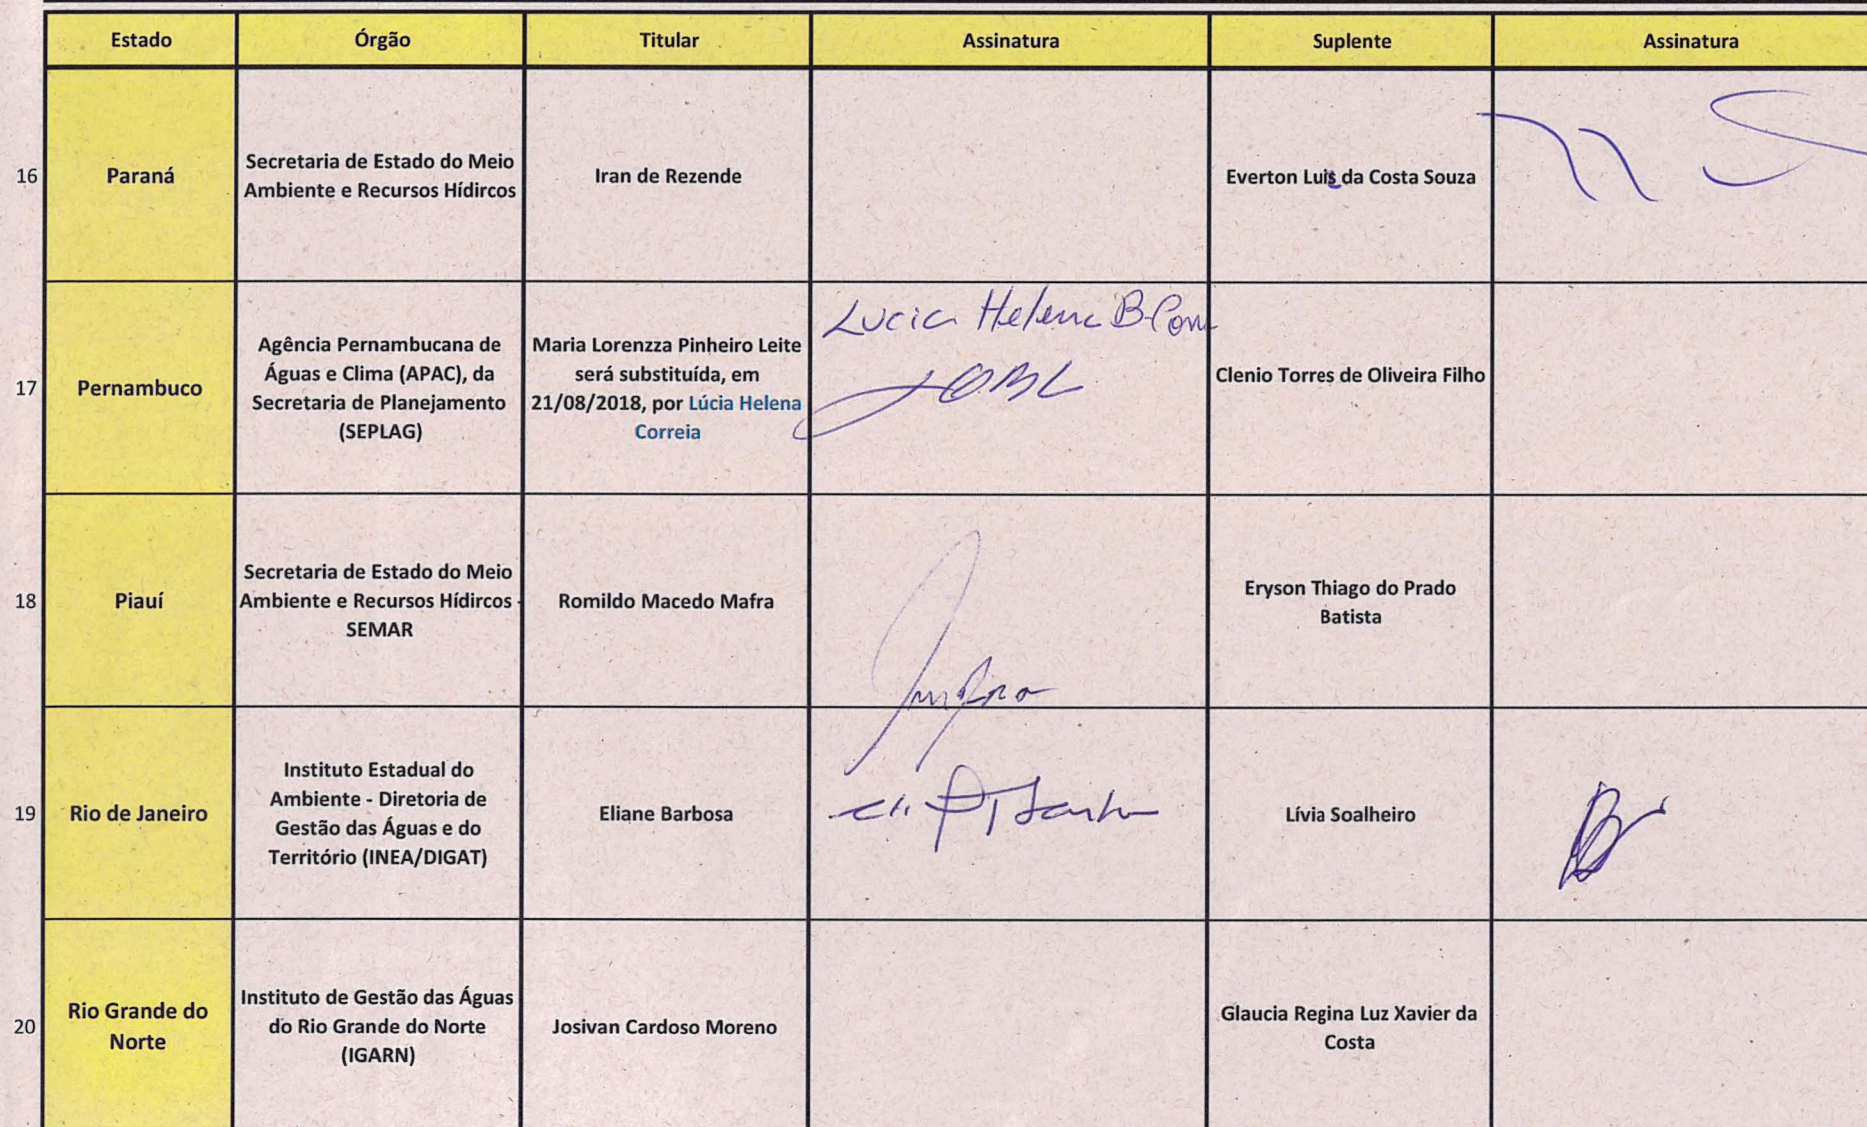 Estado Órgão Titular Assinatura Suplente Assinatura
16
Paraná
Secretaria de Estado do Meio
Ambiente e Recursos Hídircos
Iran de Rezende
Everton Luis da Costa Souza
17
Pernambuco
Agência Pernambucana de
Águas e Clima (APAC), da
Secretaria de Planejamento
(SEPLAG)
Maria Lorenzza Pinheiro Leite
será substituída, em
21/08/2018, por Lúcia Helena
Correia
Lucia Helena B.
Clenio Torres de Oliveira Filho
18
Piauí
Secretaria de Estado do Meio
Ambiente e Recursos Hídircos -
SEMAR
Romildo Macedo Mafra
Eryson Thiago do Prado
Batista
19
Rio de Janeiro
Instituto Estadual do
Ambiente - Diretoria de
Gestão das Águas e do
Território (INEA/DIGAT)
Eliane Barbosa
Lívia Soalheiro
20
Rio Grande do
Norte
Instituto de Gestão das Águas
do Rio Grande do Norte
(IGARN)
Josivan Cardoso Moreno
Glaucia Regina Luz Xavier da
Costa